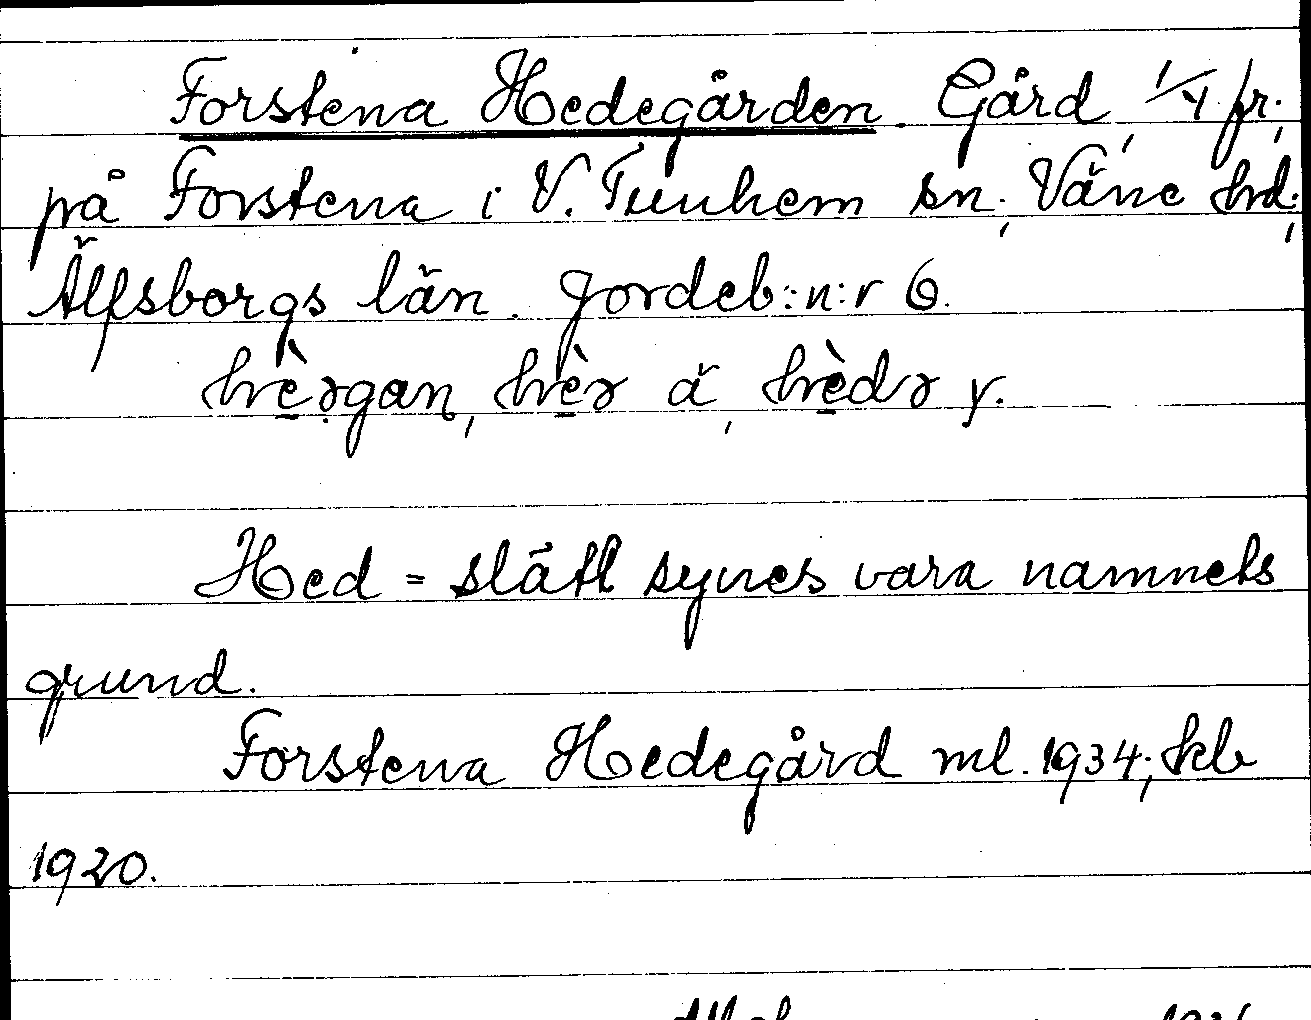 Forstena Hedegården. Gård, 1/4 fr.,
på Forstena i V. Tunhem sn., Väne hd.,
Älfsborgs län. Jordeb:n:r 6.
Hed = slätt synes vara namnets
grund.
Forstena Hedegård ml. 1934; kb
1920.